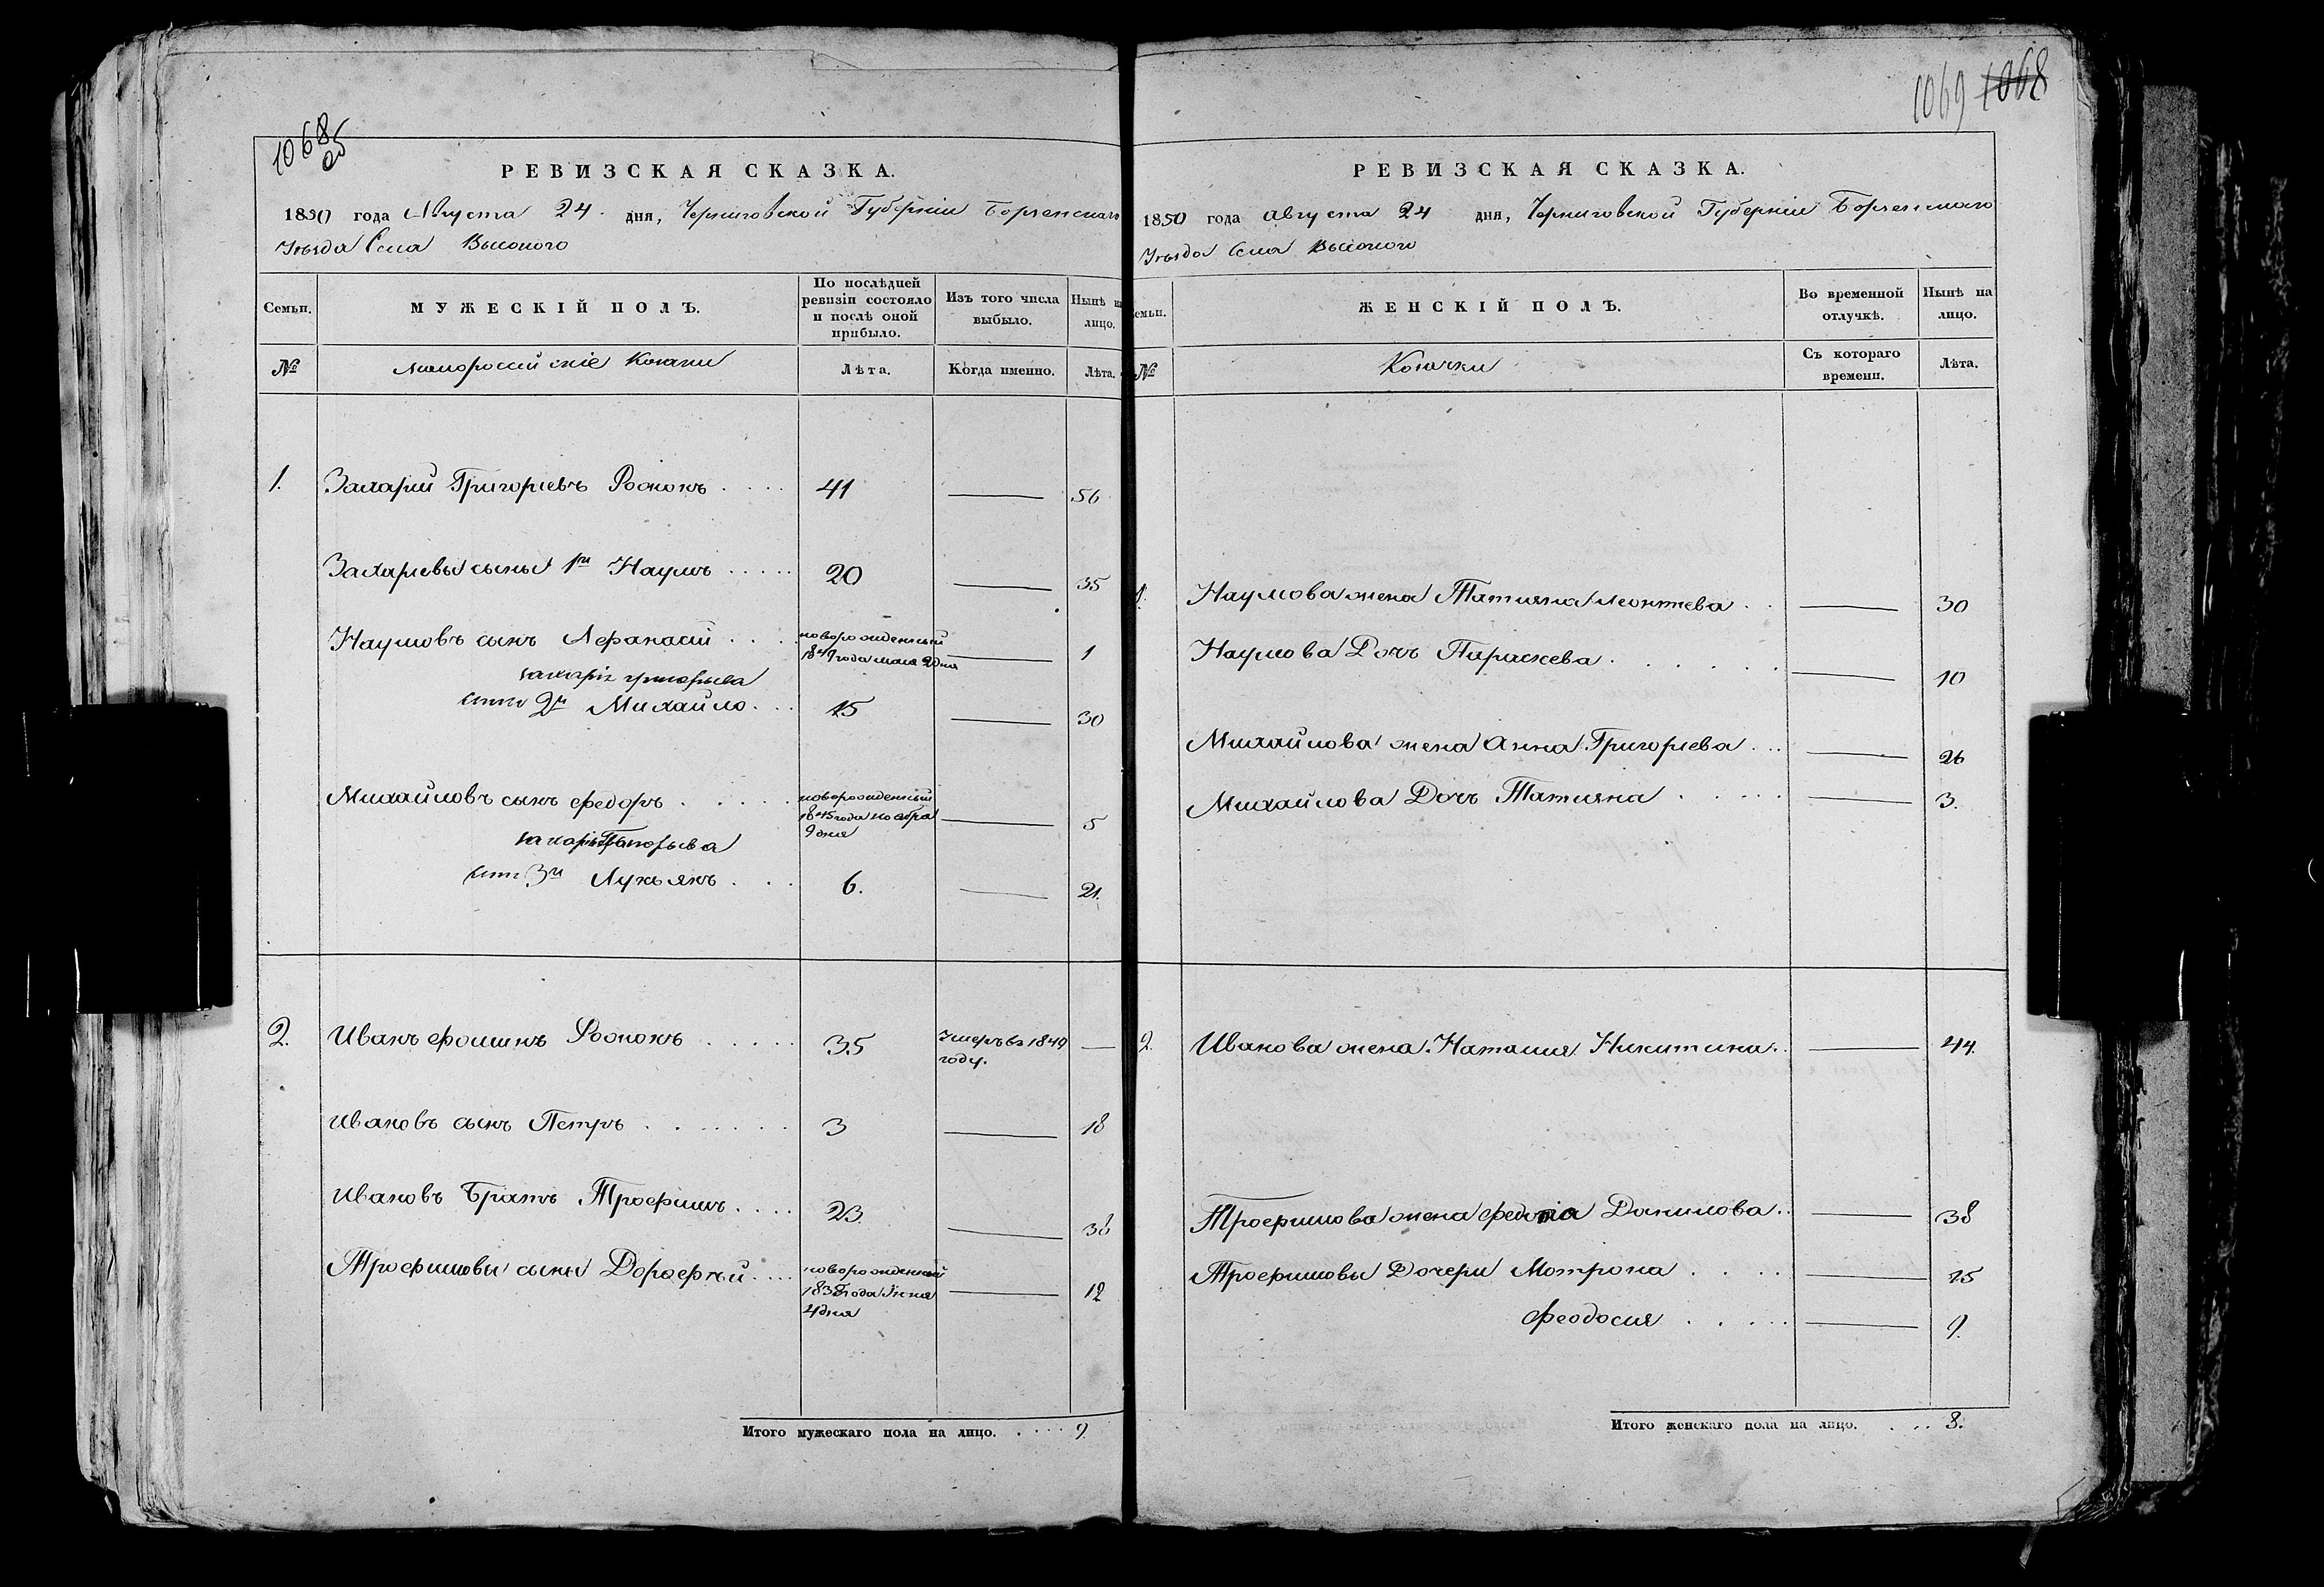 1068 об
РЕВИЗСКАЯ СКАЗКА.
1850 года Августа 24 дня, Черниговской Губерніи Борзенскаго
Уѣзда Села Высокого
Семьи.
МУЖЕСКІЙ ПОЛЪ.
По послѣдней ревизіи состояло и послѣ оной прибыло.
Изъ того числа выбыло.
Нынѣ на лицо.
№
Малороссийскіе Козаки
Лѣта.
Когда именно.
Лѣта.
1. Захарий Григорьевъ 41 — 56
Захарьевы сыны 1й Наумъ 20 — 35
Наумовъ сынъ Афанасій новорожденный 1849 года мая 2 дня — 1
Захарія Григорьева
сынъ 2й Михайло 15 — 30
Михайловъ сынъ Федоръ новорожденный 1845 года ноября 9 дня — 5
Захарія Григорьева
сынъ 3й Лукьянъ 6. — 21.
2. Иванъ Фоминъ 35 Умеръ въ 1849 году. —
Ивановъ сынъ Петръ 3 — 18
Ивановъ Братъ Трофимъ 23 — 38
Трофимовы сыны Дорофѣй новорожденный 1838 года 4 дня — 12
Итого мужескаго пола на лицо. 9
1069 1068
РЕВИЗСКАЯ СКАЗКА.
1850 года августа 24 дня, Черниговской Губерніи Борзенскаго
Уѣзда Села Высокого
Семьи.
ЖЕНСКІЙ ПОЛЪ.
Во временной отлучкѣ.
Нынѣ на лицо.
№
Козачки
Съ котораго времени.
Лѣта.
1. Наумова жена Татияна Леонтьева — 30
Наумова Дочь Параскева — 10
Михайлова жена Анна Григорьева — 26
Михайлова Дочь Татияна — 3.
2. Иванова жена Наталия Никитина — 44.
Трофимова жена Данилова — 38
Трофимовы Дочери Мотрона — 15
Феодосия — 9.
Итого женскаго пола на лицо. 8.